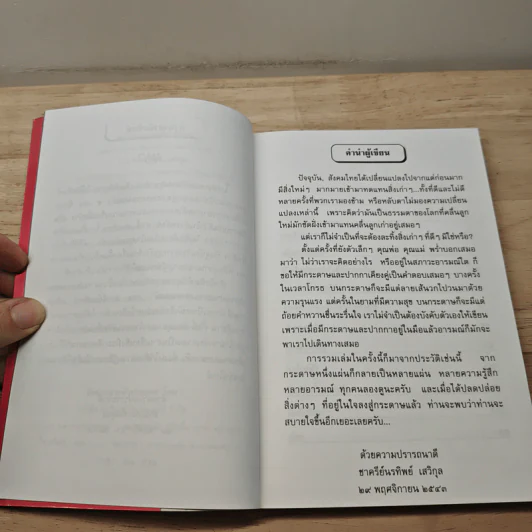 คำนำผู้เขียน
ปัจจุบัน, สังคมไทยได้เปลี่ยนแปลงไปจากแต่ก่อนมาก
มีสิ่งใหม่ๆ มากมายเข้ามาทดแทนสิ่งเก่าๆ...ทั้งที่ดีและไม่ดี
หลายครั้งที่พวกเรามองข้าม หรือหลับตาไม่มองความเปลี่ยน
แปลงเหล่านี้ เพราะคิดว่ามันเป็นธรรมดาของโลกที่คลื่นลูก
ใหม่มักซัดฝั่งเข้ามาแทนคลื่นลูกเก่าอยู่เสมอๆ
แต่เราก็ไม่จำเป็นที่จะต้องละทิ้งสิ่งเก่าๆ ที่ดีๆ มิใช่หรือ?
ตั้งแต่ครั้งที่ยังตัวเล็กๆ คุณพ่อ คุณแม่ พร่ำบอกเสมอ
มาว่า ไม่ว่าเราจะคิดอย่างไร หรืออยู่ในสภาวะอารมณ์ใด ก็
ขอให้มีกระดาษและปากกาเคียงคู่เป็นคำตอบเสมอๆ บางครั้ง
ในเวลาโกรธ บนกระดาษก็จะมีแต่ลายเส้นวกไปวนมาด้วย
ความรุนแรง แต่ครั้นในยามที่มีความสุข บนกระดาษก็จะมีแต่
ถ้อยคำหวานชื่นระรื่นใจ เราไม่จำเป็นต้องบังคับตัวเองให้เขียน
เพราะเมื่อมีกระดาษและปากกาอยู่ในมือแล้วอารมณ์ก็มักจะ
พาเราไปเดินทางเสมอ
การรวมเล่มในครั้งนี้ก็มาจากประวัติเช่นนี้ จาก
กระดาษหนึ่งแผ่นก็กลายเป็นหลายแผ่น หลายความรู้สึก
หลายอารมณ์ ทุกคนลองดูนะครับ และเมื่อได้ปลดปล่อย
สิ่งต่างๆ ที่อยู่ในใจลงสู่กระดาษแล้ว ท่านจะพบว่าท่านจะ
สบายใจขึ้นอีกเยอะเลยครับ...
ด้วยความปรารถนาดี
ชาครีย์นรทิพย์ เสวิกุล
๒๙ พฤศจิกายน ๒๕๔๓